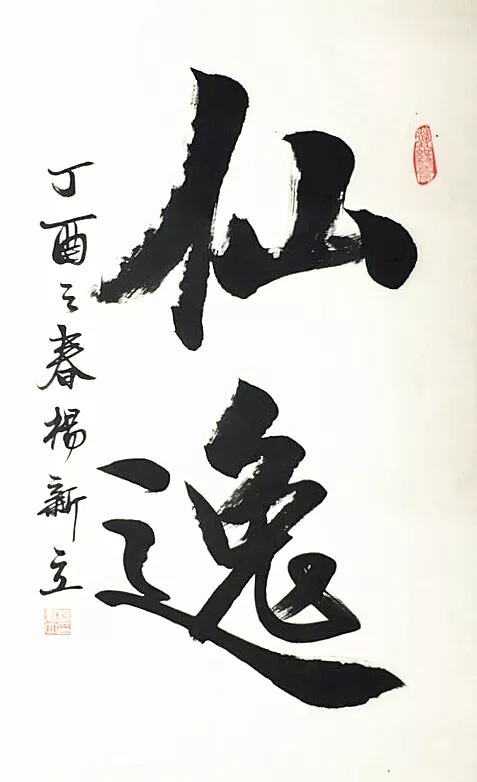 仙逸
丁酉之春杨新立